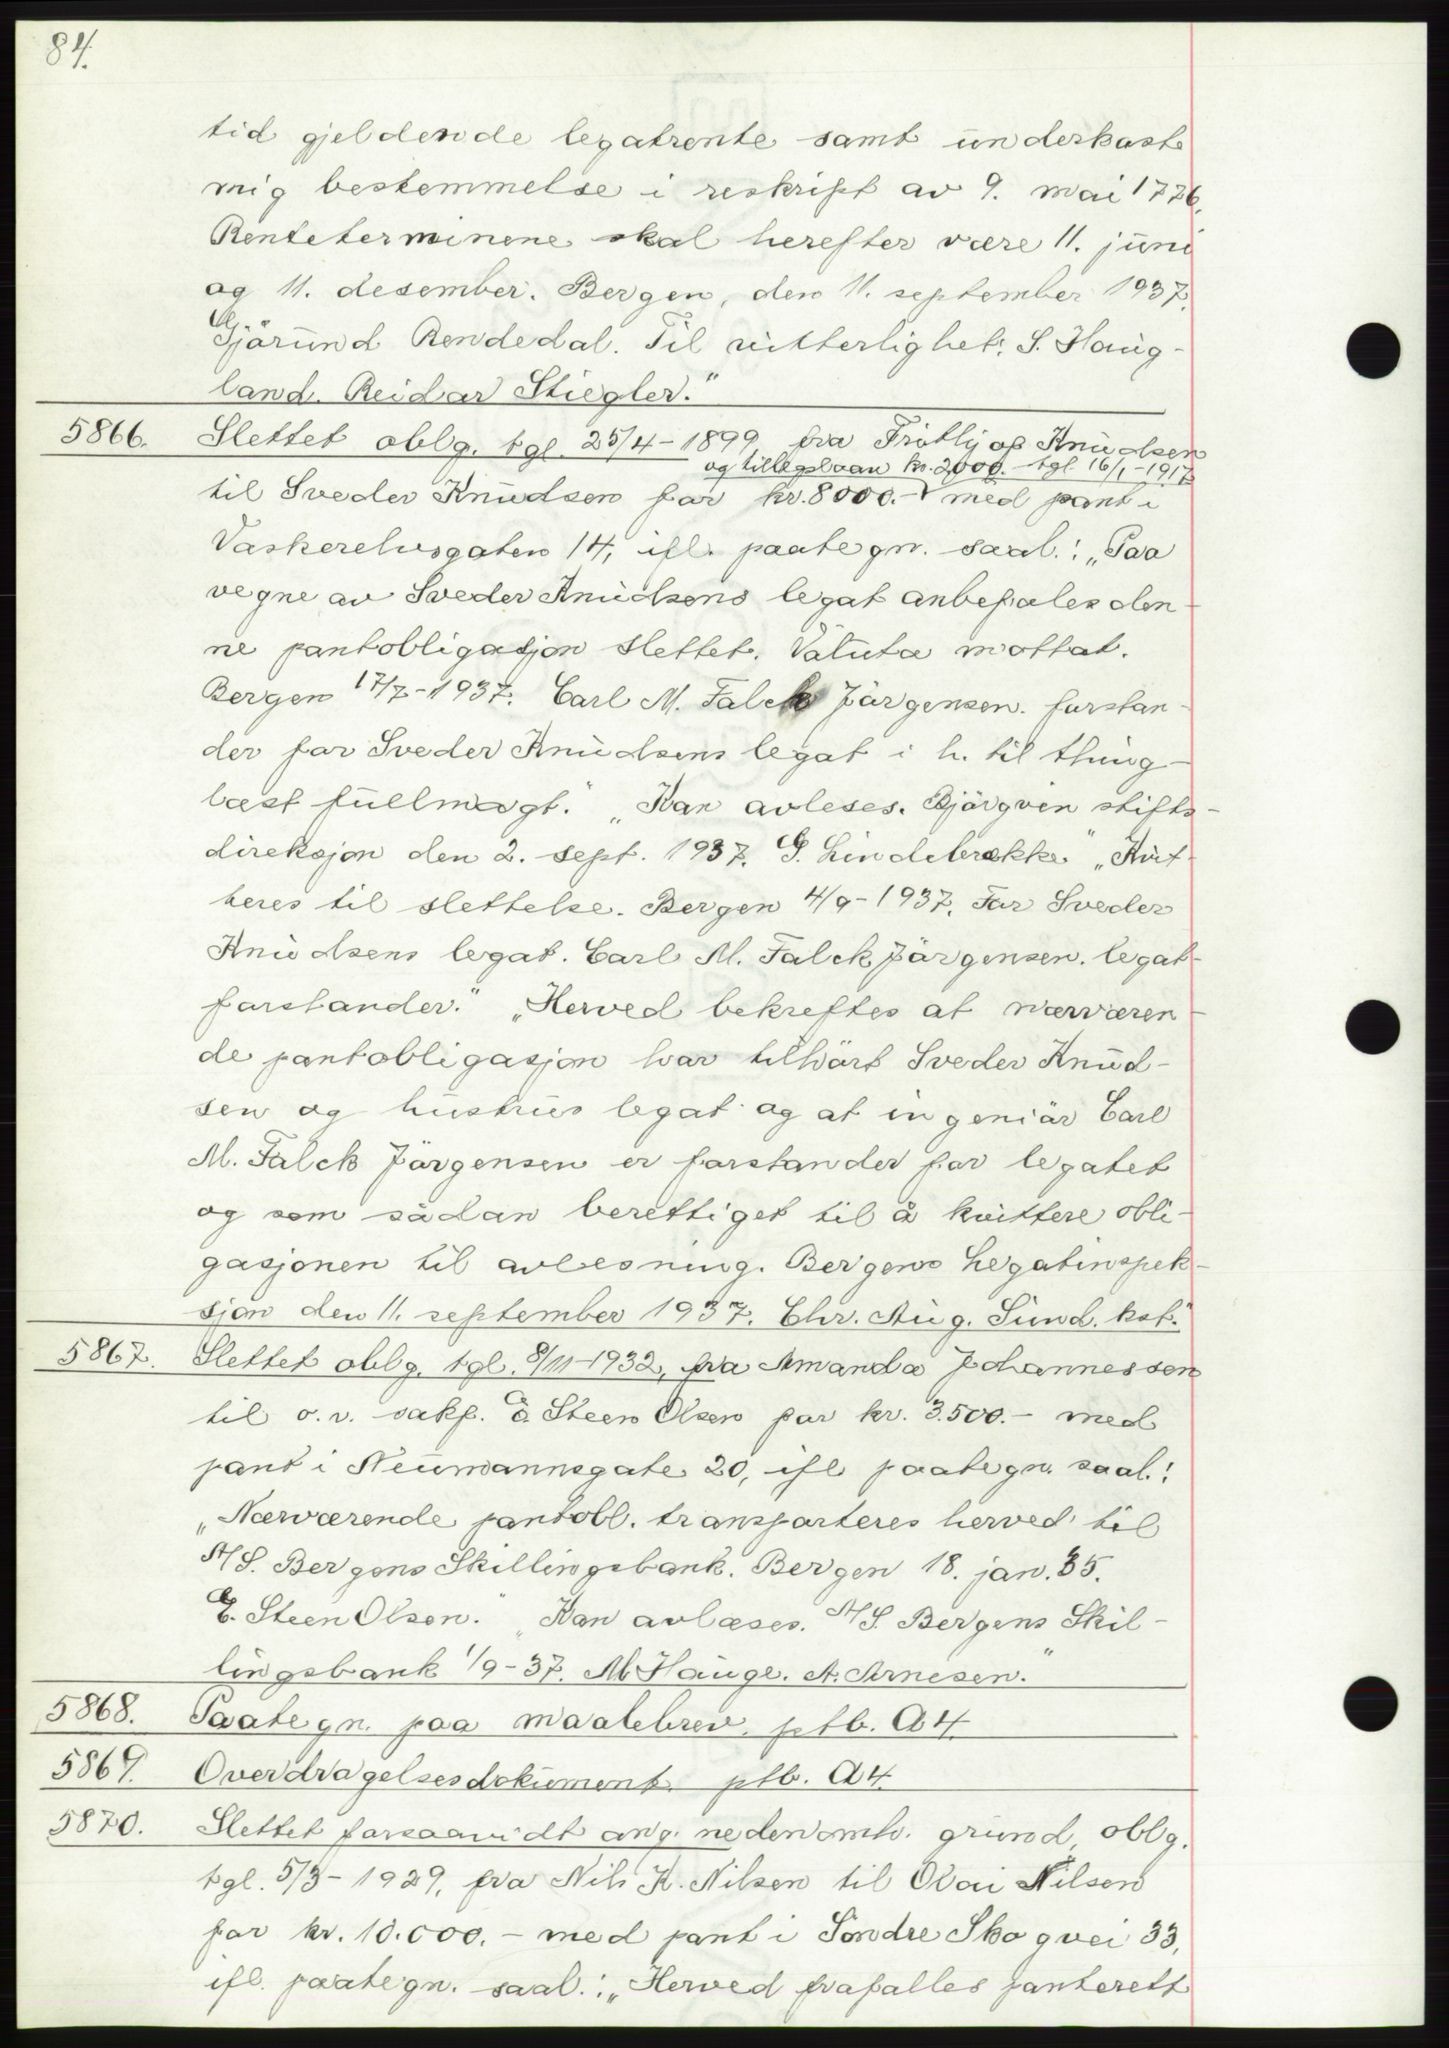 84.
tid gjeldende legatrente samt underkaste
mig bestemmelse i reskript av 9. mai 1776.
Renteterminene skal herefter være 11. juni
og 11. desember. Bergen, den 11. september 1937.
Gjörund Rendedal. Til vitterlighet: S. Haug-
land. Reidar Stiegler."
5866. Slettet oblg. tgl. 25/4-1899, fra Frithjof Knudsen
og tillegslaan kr. 2000.- tgl 16/1-1917
til Sveder Knudsen for kr. 8000.- med pant i
Vaskerelvsgaten 14, ifl. paategn. saal.: „Paa
vegne av Sveder Knudsens legat anbefales den-
ne pantobligasjon slettet. Valuta mottat.
Bergen 17/7-1937. Carl M. Falck Jörgensen. forstan-
der for Sveder Knudsens legat i h. til thing-
læst fullmagt." „Kan avleses. Björgvin stifts-
direksjon den 2. sept. 1937. G. Lindebrække" „Kvit-
teres til slettelse. Bergen 4/9-1937. For Sveder
Knudsens legat. Carl M. Falck Jörgensen. legat-
forstander." „Herved bekreftes at nærværen-
de pantobligasjon har tilhört Sveder Knud-
sen og hustrus legat og at ingeniör Carl
M. Falck Jörgensen er forstander for legatet
og som sådan berettiget til å kvittere obli-
gasjonen til avlesning. Bergens Legatinspek-
sjon den 11. september 1937. Chr. Aug. Sund. kst."
5867. Slettet oblg. tgl. 8/11-1932, fra Amanda Johannessen
til o.r. sakf. E. Steen Olsen for kr. 3.500.- med
pant i Neumannsgate 20, ifl paategn. saal.:
„Nærværende pantobl. transporteres herved til
A/S. Bergens Skillingsbank. Bergen 18. jan. 35.
E. Steen Olsen." „Kan avlæses. A/S. Bergens Skil-
lingsbank 1/9-37. M Hauge. A. Arnesen."
5868. Paategn. paa maalebrev. ptb. A4.
5869. Overdragelsesdokument. ptb. A4.
5870. Slettet forsaavidt ang. nedenomh. grund, oblg.
tgl. 5/3-1929, fra Nils K. Nilsen til Olai Nilsen
for kr. 10.000.- med pant i Söndre Skogvei 33,
ifl. paategn. saal.: „Herved frafalles panterett